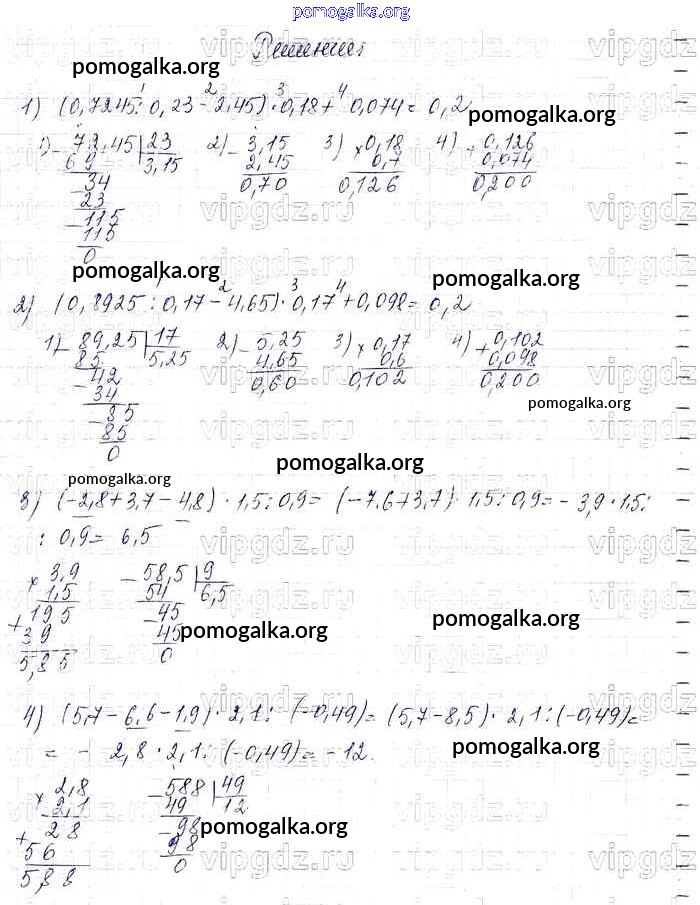 pomogalka.org
Решения
pomogalka.org
1) (0,7245 : 0,23 - 2,45) · 0,18 + 0,074 = 0,2
1 2 3 4
pomogalka.org
1) 72,45 | 23
69 3,15
34
23
115
115
0
2) - 3,15
2,45
0,70
3) × 0,18
0,7
0,126
4) + 0,126
0,074
0,200
pomogalka.org
pomogalka.org
2) (0,8925 : 0,17 - 4,65) · 0,17 + 0,098 = 0,2
2 3 4
1) - 89,25 | 17
85 5,25
- 42
34
- 85
85
0
2) - 5,25
4,65
0,60
3) × 0,17
0,6
0,102
4) + 0,102
0,098
0,200
pomogalka.org
pomogalka.org
pomogalka.org
3) (-2,8 + 3,7 - 4,8) · 1,5 : 0,9 = (-7,6 + 3,7) · 1,5 : 0,9 = - 3,9 · 1,5 :
: 0,9 = 6,5
× 3,9
1,5
+ 195
39
5,85
- 58,5 | 9
54 6,5
- 45
45
0
pomogalka.org
pomogalka.org
4) (5,7 - 6,6 - 1,9) · 2,1 : (-0,49) = (5,7 - 8,5) · 2,1 : (-0,49) =
= - 2,8 · 2,1 : (-0,49) = -12.
pomogalka.org
× 2,8
2,1
+ 28
56
5,88
- 588 | 49
49 12
- 98
98
0
pomogalka.org
vipgdz.ru